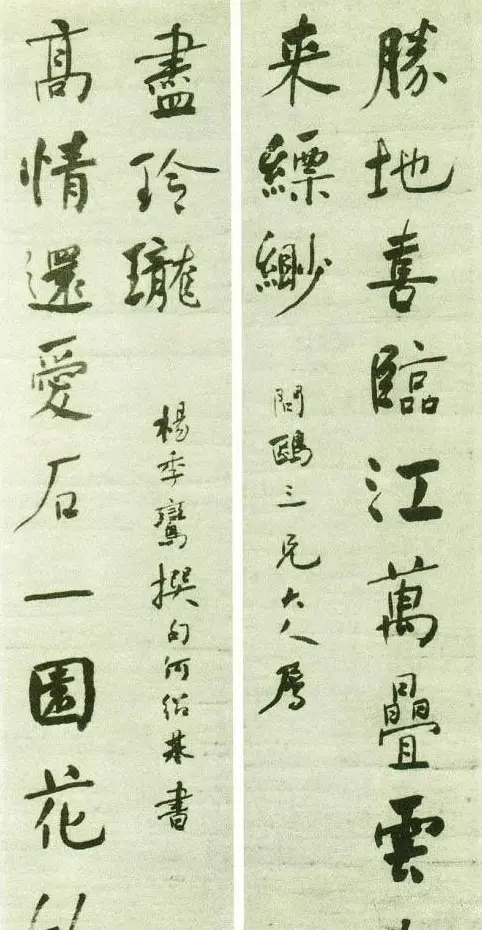 勝地喜臨江萬疊雲
来縹緲
問鷗三兄大人屬
高情還愛石一園花
盡玲瓏
楊季鸞撰句何紹基書